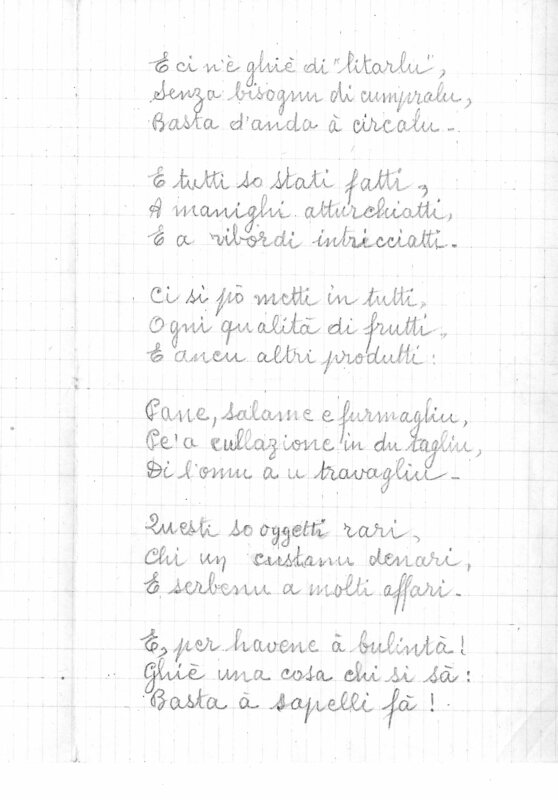 E ci n'è ghiè di "litarlu",
Senza bisognu di cumpralu,
Basta d'anda à circalu -
E tutti so stati fatti,
A manighi atturchiatti,
E a ribordi intricciatti.
Ci si pò metti in tutti,
Ogni qualità di frutti,
E ancu altri produtti:
Pane, salame e furmagliu,
Pe'a cullazione in du tagliu,
Di l'omu a u travagliu -
Questi so oggetti rari,
Chi un custanu denari,
E serbenu a molti affari.
E, per havene à bulintà!
Ghiè una cosa chi si sà:
Basta à sapelli fà!